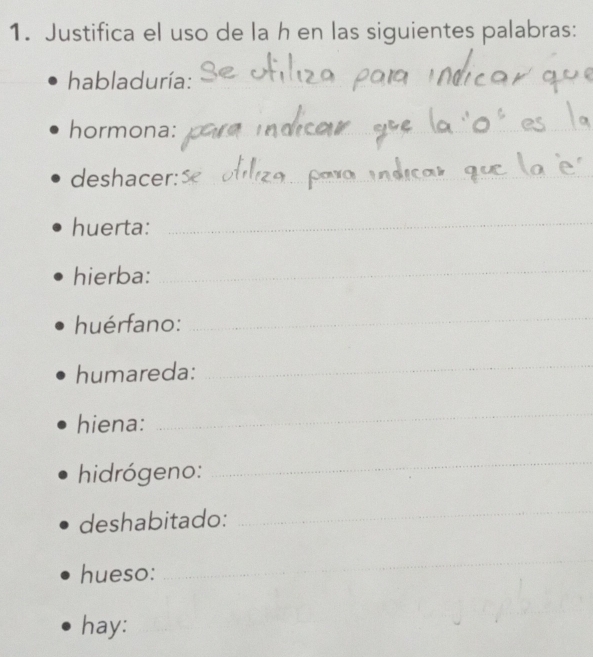 1. Justifica el uso de la h en las siguientes palabras:
• habladuría: Se utiliza para indicar que
• hormona: para indicar que la "o" es la
• deshacer: se utiliza para indicar que la "e"
• huerta:
• hierba:
• huérfano:
• humareda:
• hiena:
• hidrógeno:
• deshabitado:
• hueso:
• hay: